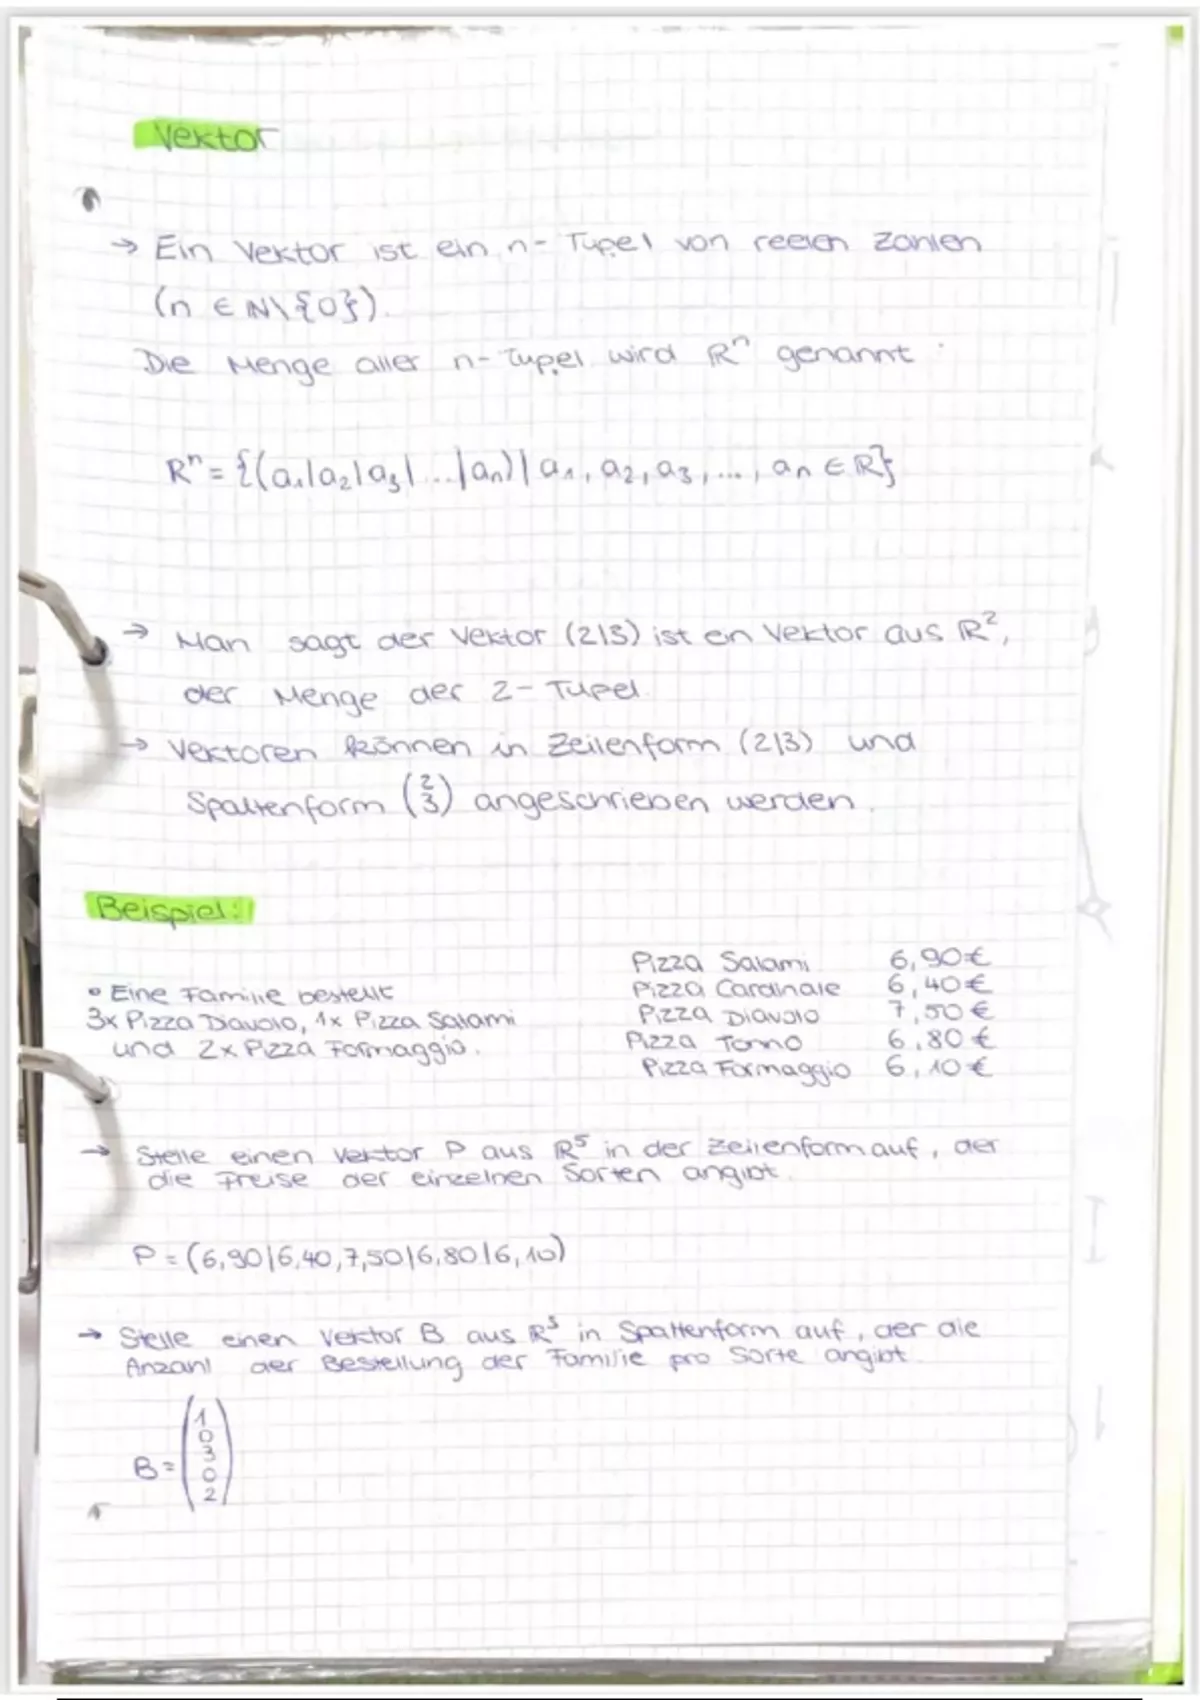 Vektor
→ Ein Vektor ist ein n-Tupel von reelen Zahlen
(n ∈ ℕ\{0}).
Die Menge aller n-Tupel wird ℝⁿ genannt:
ℝⁿ = {(a₁|a₂|a₃|...|aₙ)| a₁, a₂, a₃, ..., aₙ ∈ ℝ}
→ Man sagt der Vektor (2|3) ist ein Vektor aus ℝ²,
der Menge der 2-Tupel.
→ Vektoren können in Zeilenform (2|3) und
Spaltenform (2 3) angeschrieben werden.
Beispiel:
• Eine Familie bestellt
3x Pizza Diavolo, 1x Pizza Salami
und 2x Pizza Formaggio.
Pizza Salami 6,90€
Pizza Cardinale 6,40€
Pizza Diavolo 7,50€
Pizza Tonno 6,80€
Pizza Formaggio 6,10€
→ Stelle einen Vektor P aus ℝ⁵ in der Zeilenform auf, der
die Preise der einzelnen Sorten angibt.
P = (6,90|6,40,7,50|6,80|6,10)
→ Stelle einen Vektor B aus ℝ⁵ in Spaltenform auf, der die
Anzahl der Bestellung der Familie pro Sorte angibt.
B =
1
0
3
0
2